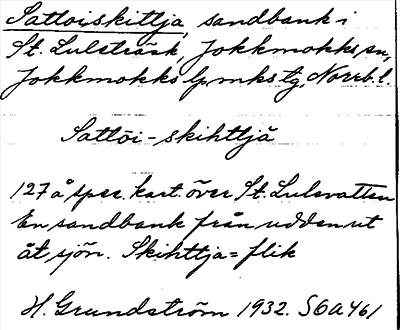 Sattoiskittja, sandbank i
St. Lulsträsk, Jokkmokks sn,
Jokkmokks lpmks tg, Norrb. l.
Sattōi-skihttjā
127 å spec. kart. över St. Lulevatten
En sandbank från udden ut
åt sjön. Skihttja = flik
H. Grundström 1932. SOA 461